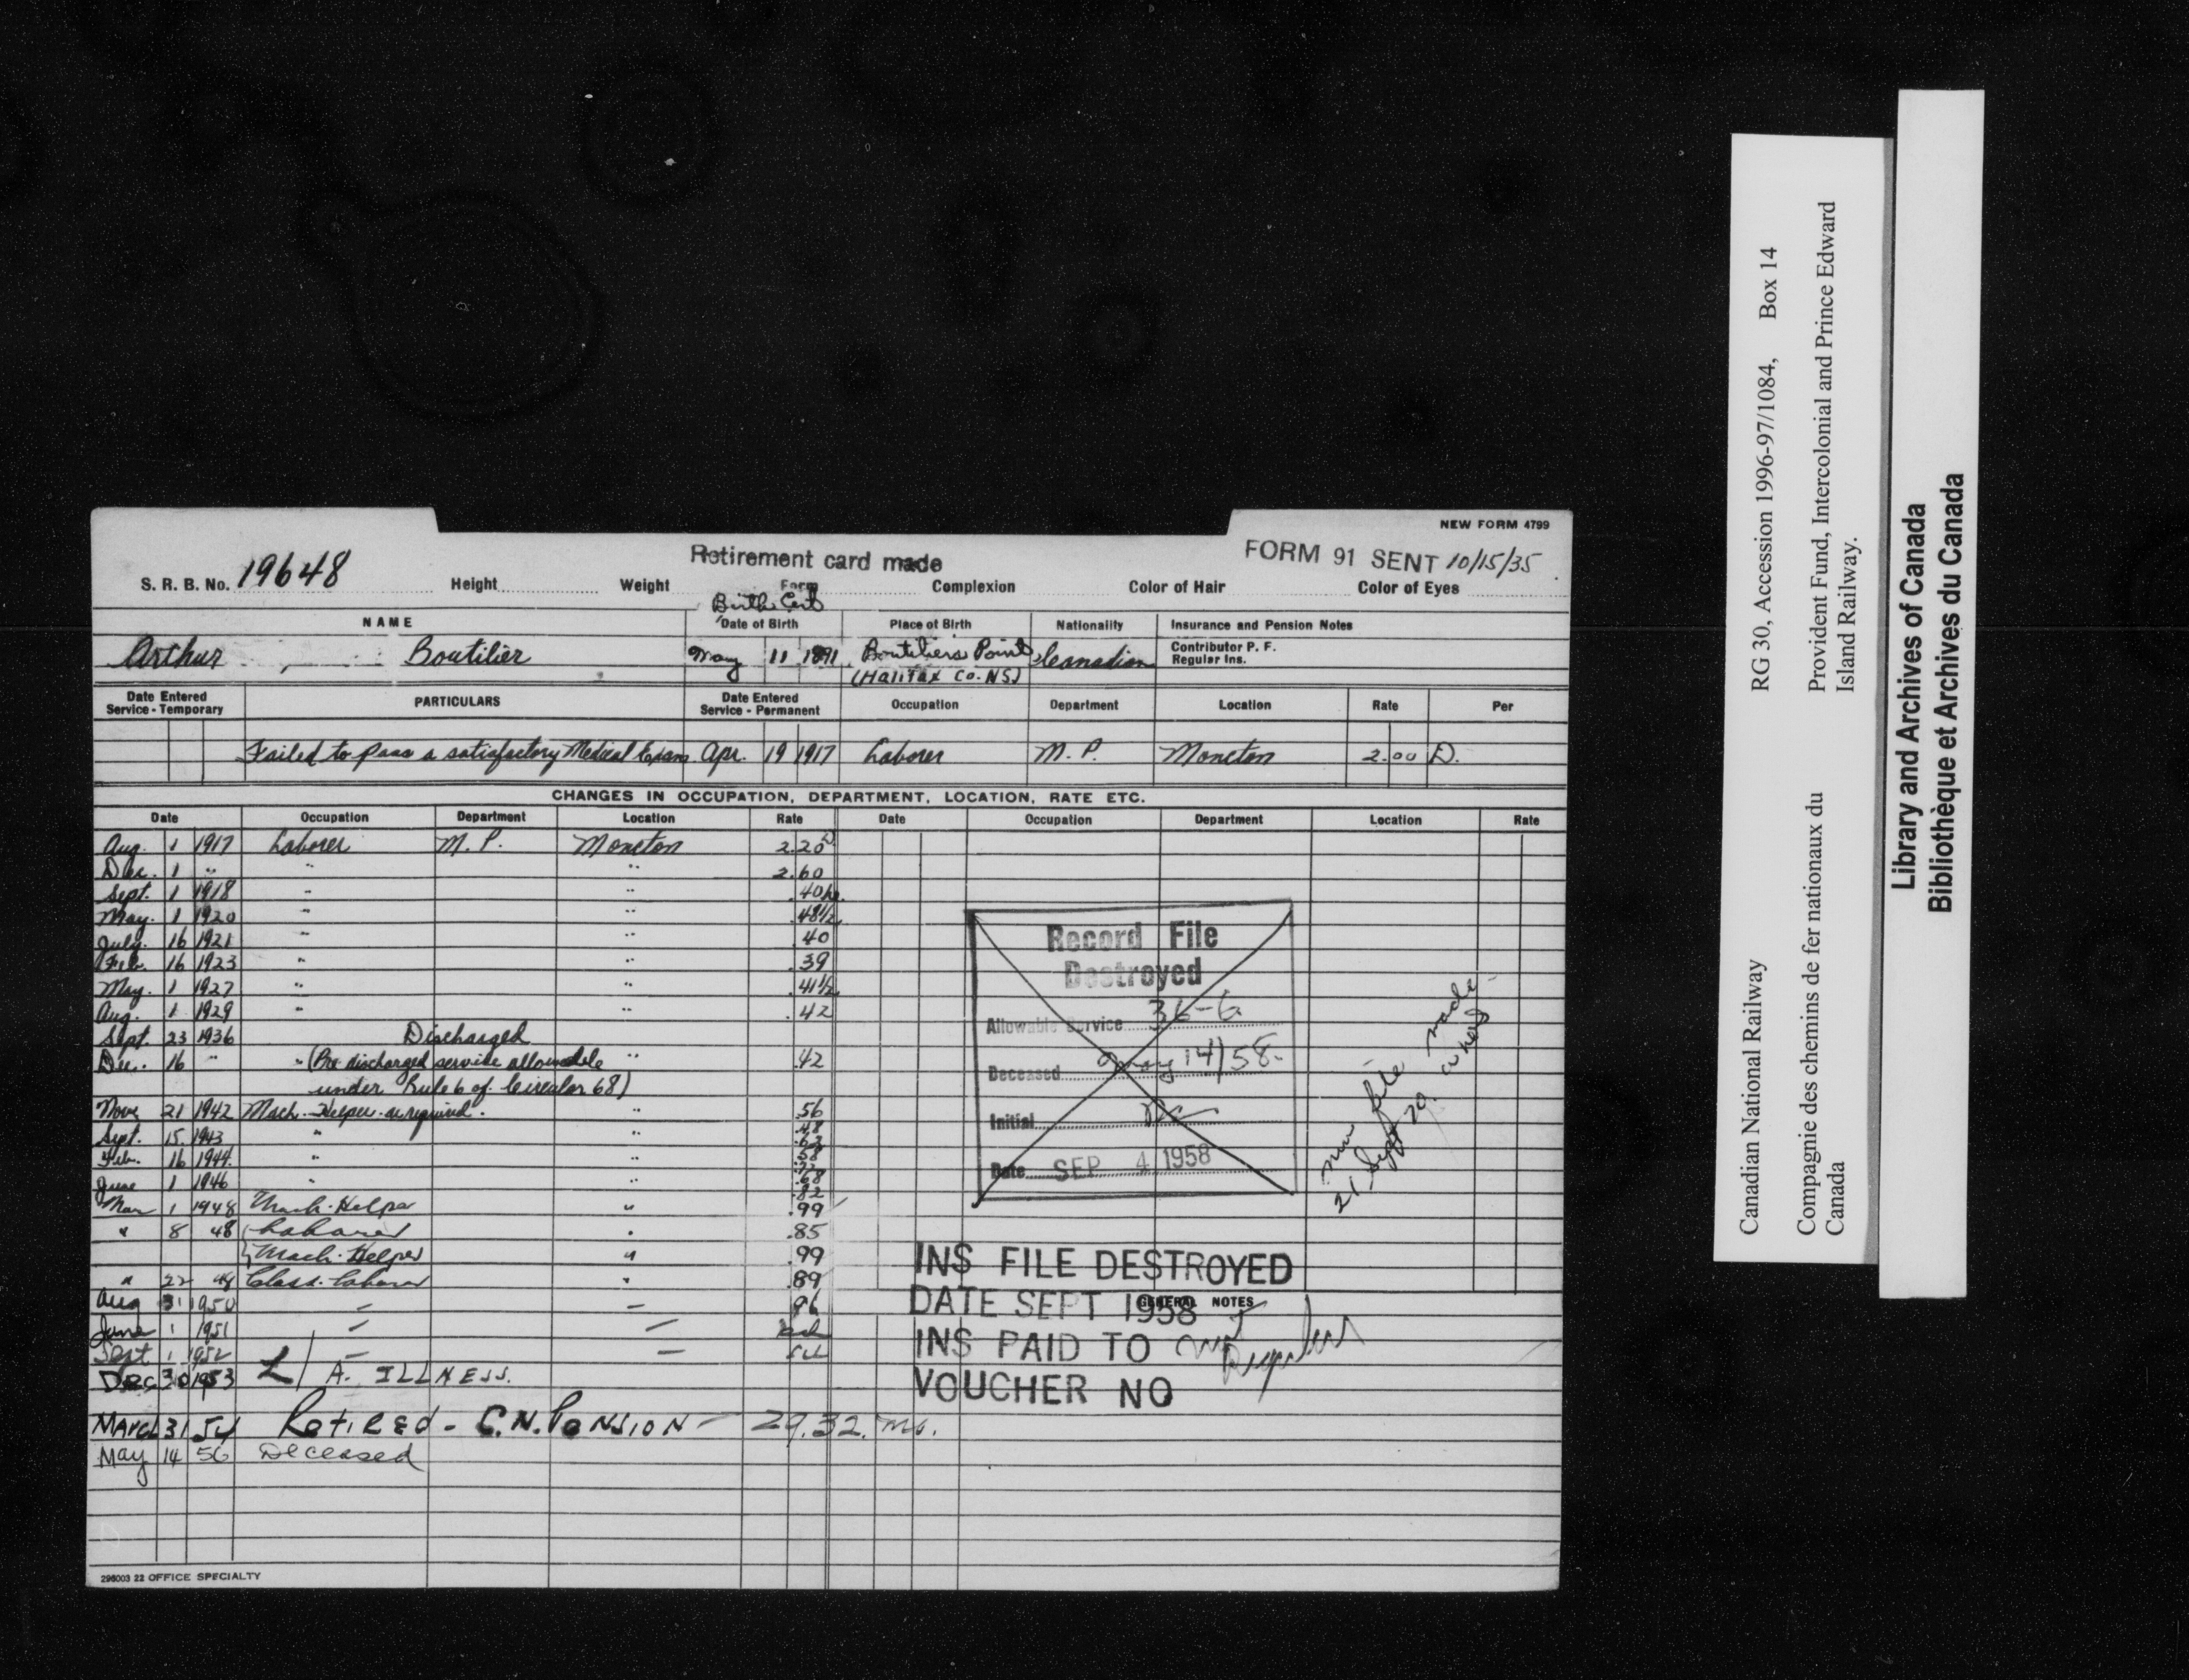 NEW FORM 4799
Retirement card made
FORM 91 SENT 10/15/35
S. R. B. No. 19648 Height Weight Form Complexion Color of Hair Color of Eyes
Birth Cert
NAME Date of Birth Place of Birth Nationality Insurance and Pension Notes
Arthur Boutilier May 11 1891 Boutiliers Point Canadian Contributor P. F.
(Halifax Co. NS) Regular Ins.
Date Entered Service - Temporary PARTICULARS Date Entered Service - Permanent Occupation Department Location Rate Per
Failed to pass a satisfactory Medical Exam. Apr. 19 1917 Laborer M. P. Moncton 2.00 D.
CHANGES IN OCCUPATION, DEPARTMENT, LOCATION, RATE ETC.
Date Occupation Department Location Rate Date Occupation Department Location Rate
Aug. 1 1917 Laborer M. P. Moncton 2.20 D
Dec. 1 " " " 2.60
Sept. 1 1918 " " .40 hr.
May. 1 1920 " " .48½
July. 16 1921 " " .40
Feb. 16 1923 " " .39
May. 1 1927 " " .41½
Aug. 1 1929 " " .42
Sept. 23 1936 Discharged
Dec. 16 " " (Pre discharged service allowable " .42
under Rule 6 of Circular 68)
Nov. 21 1942 Mach. Helper as required. " .56
Sept. 15 1943 " " .48 .63
Feb. 16 1944 " " .58 .72
June 1 1946 " " .68 .82
Mar 1 1948 Mach. Helper " .99
" 8 48 Laborer " .85
Mach. Helper " .99
" 22 48 Class. Laborer " .89
Aug 31 1950 — — .96
June 1 1951 — —
Sept 1 1952 — —
Dec 30 1953 L/A. ILLNESS.
March 31 54 Retired - C.N. Pension - 29.32 mo.
May 14 56 Deceased
Record File
Destroyed
Allowable Service 36-6
Deceased May 14/58
Initial
Date SEP 4 1958
new file made
21 Sept 70
INS FILE DESTROYED
DATE SEPT 1958
GENERAL NOTES
INS PAID TO
VOUCHER NO
296003 22 OFFICE SPECIALTY
Canadian National Railway RG 30, Accession 1996-97/1084, Box 14
Compagnie des chemins de fer nationaux du Canada
Provident Fund, Intercolonial and Prince Edward Island Railway.
Library and Archives of Canada
Bibliothèque et Archives du Canada